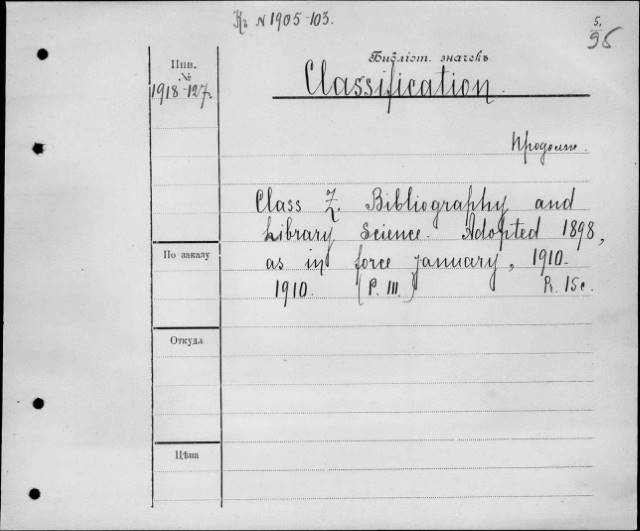 Къ N 1905-103.
5.
95
Библіот. значекъ
Classification.
Инв.
№
1918-127.
Продолж.
Class Z. Bibliography and
Library Science. Adopted 1898,
as in force january, 1910.
1910. (P. III.) R. 15c.
По заказу
Откуда
Цѣна